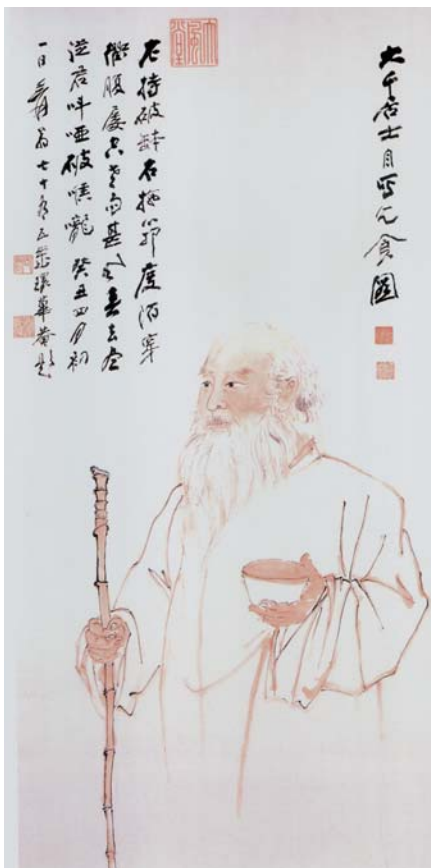 大千居士自寫乞食圖
左持破鉢右拖筇度陌穿
衢腹屢空老雨甚風春去盡
從君叫啞破喉嚨 癸丑四月初
一日爰翁七十有五歲環蓽菴題
大風堂